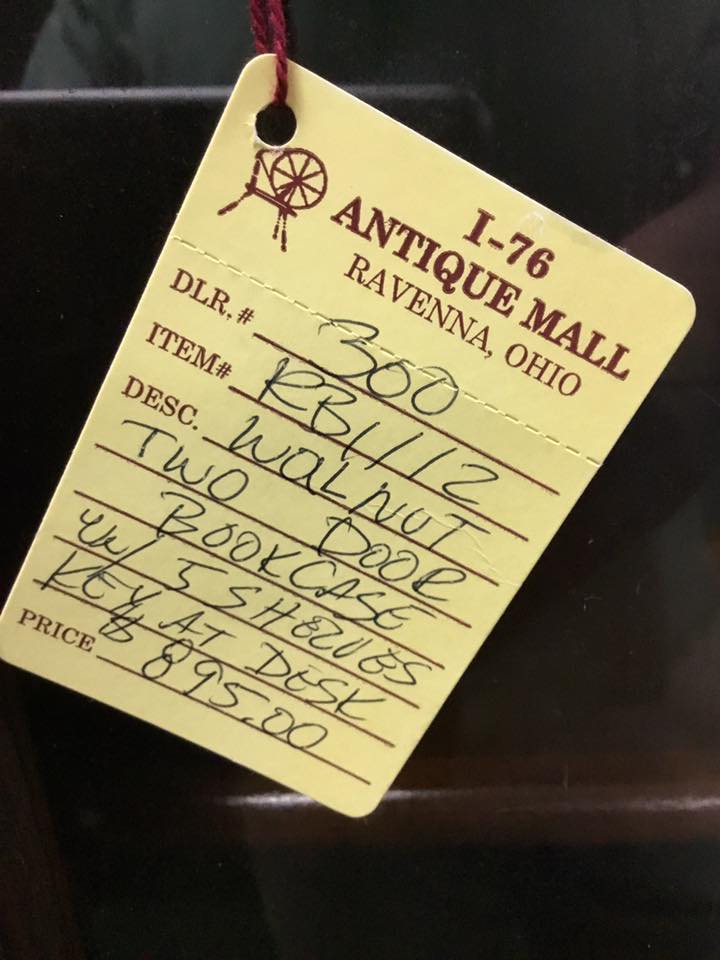 I-76
ANTIQUE MALL
RAVENNA, OHIO
DLR. # 300
ITEM# RB1112
DESC. WALNUT
TWO DOOR
BOOKCASE
W/ 5 SHELVES
KEY AT DESK
PRICE $895.00